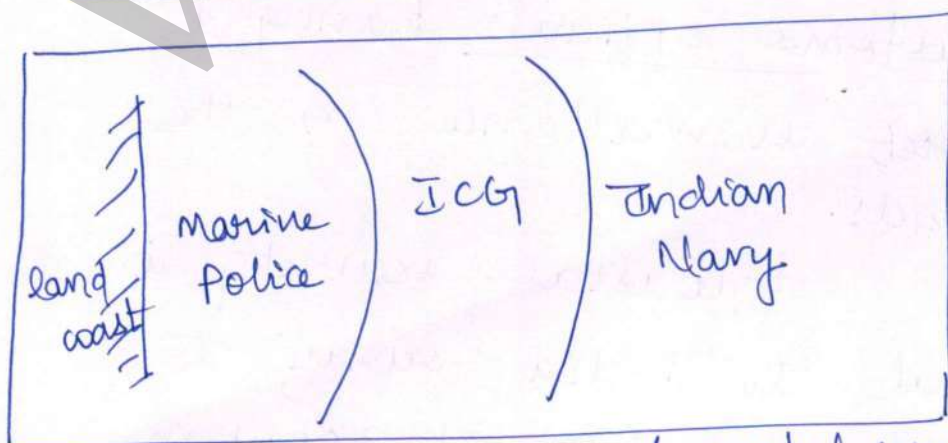 land
coast
Marine
Police
ICG
Indian
Navy.